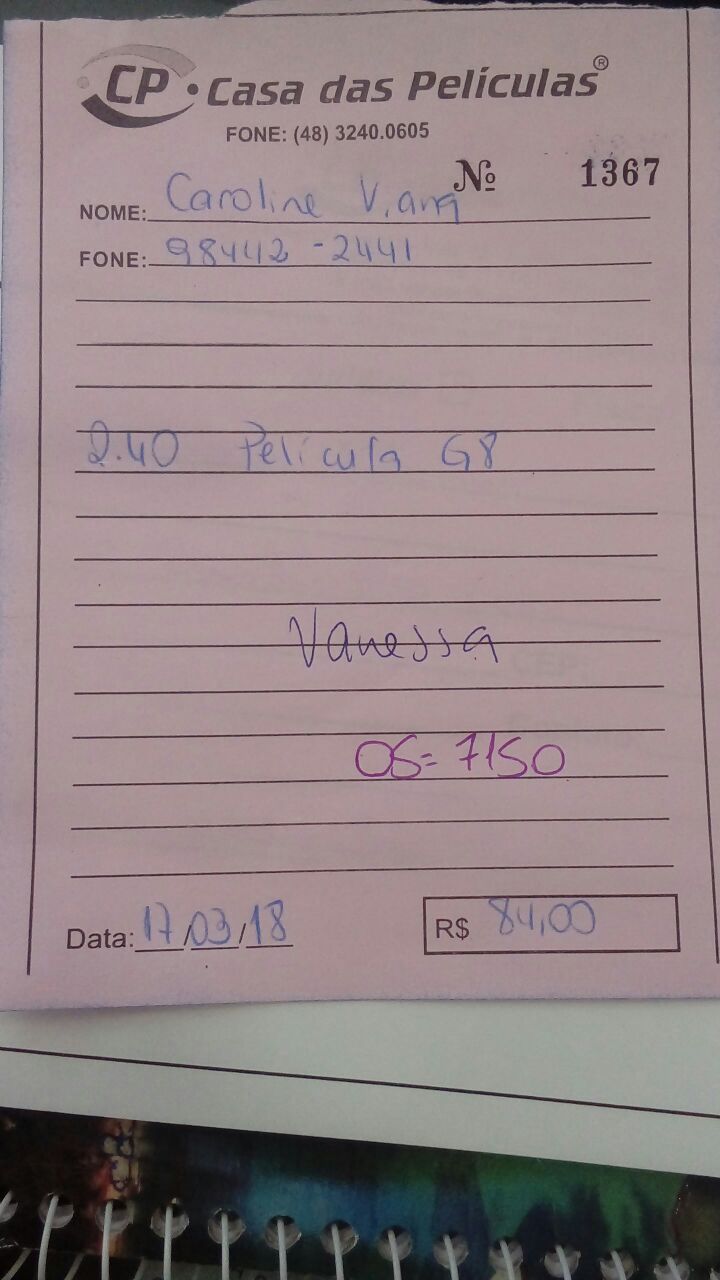 CP · Casa das Películas®
FONE: (48) 3240.0605
Nº 1367
NOME: Caroline Viana
FONE: 98442-2441
2.40 Película G8
Vanessa
OS= 7150
Data: 17/03/18 R$ 84,00